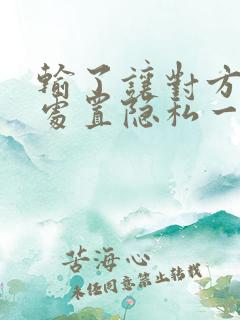 輸了讓對方
處置隐私一
苦海心
未经同意禁止转载